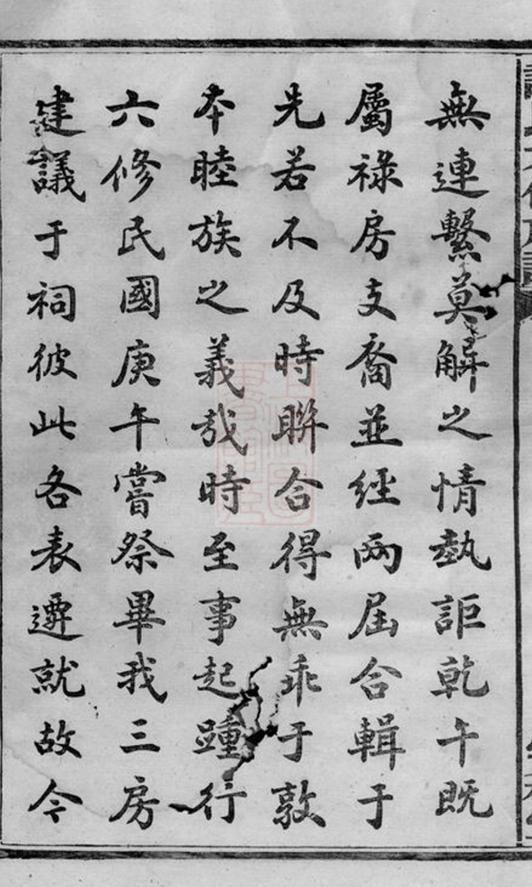 無連繫莫解之情埶詎乾午既
屬祿房支裔並經兩屆合輯于
先若不及時聯合得無乖于敦
本睦族之義哉時至事起踵行
六修民國庚午嘗祭畢我三房
建議于祠彼此各表遷就故今